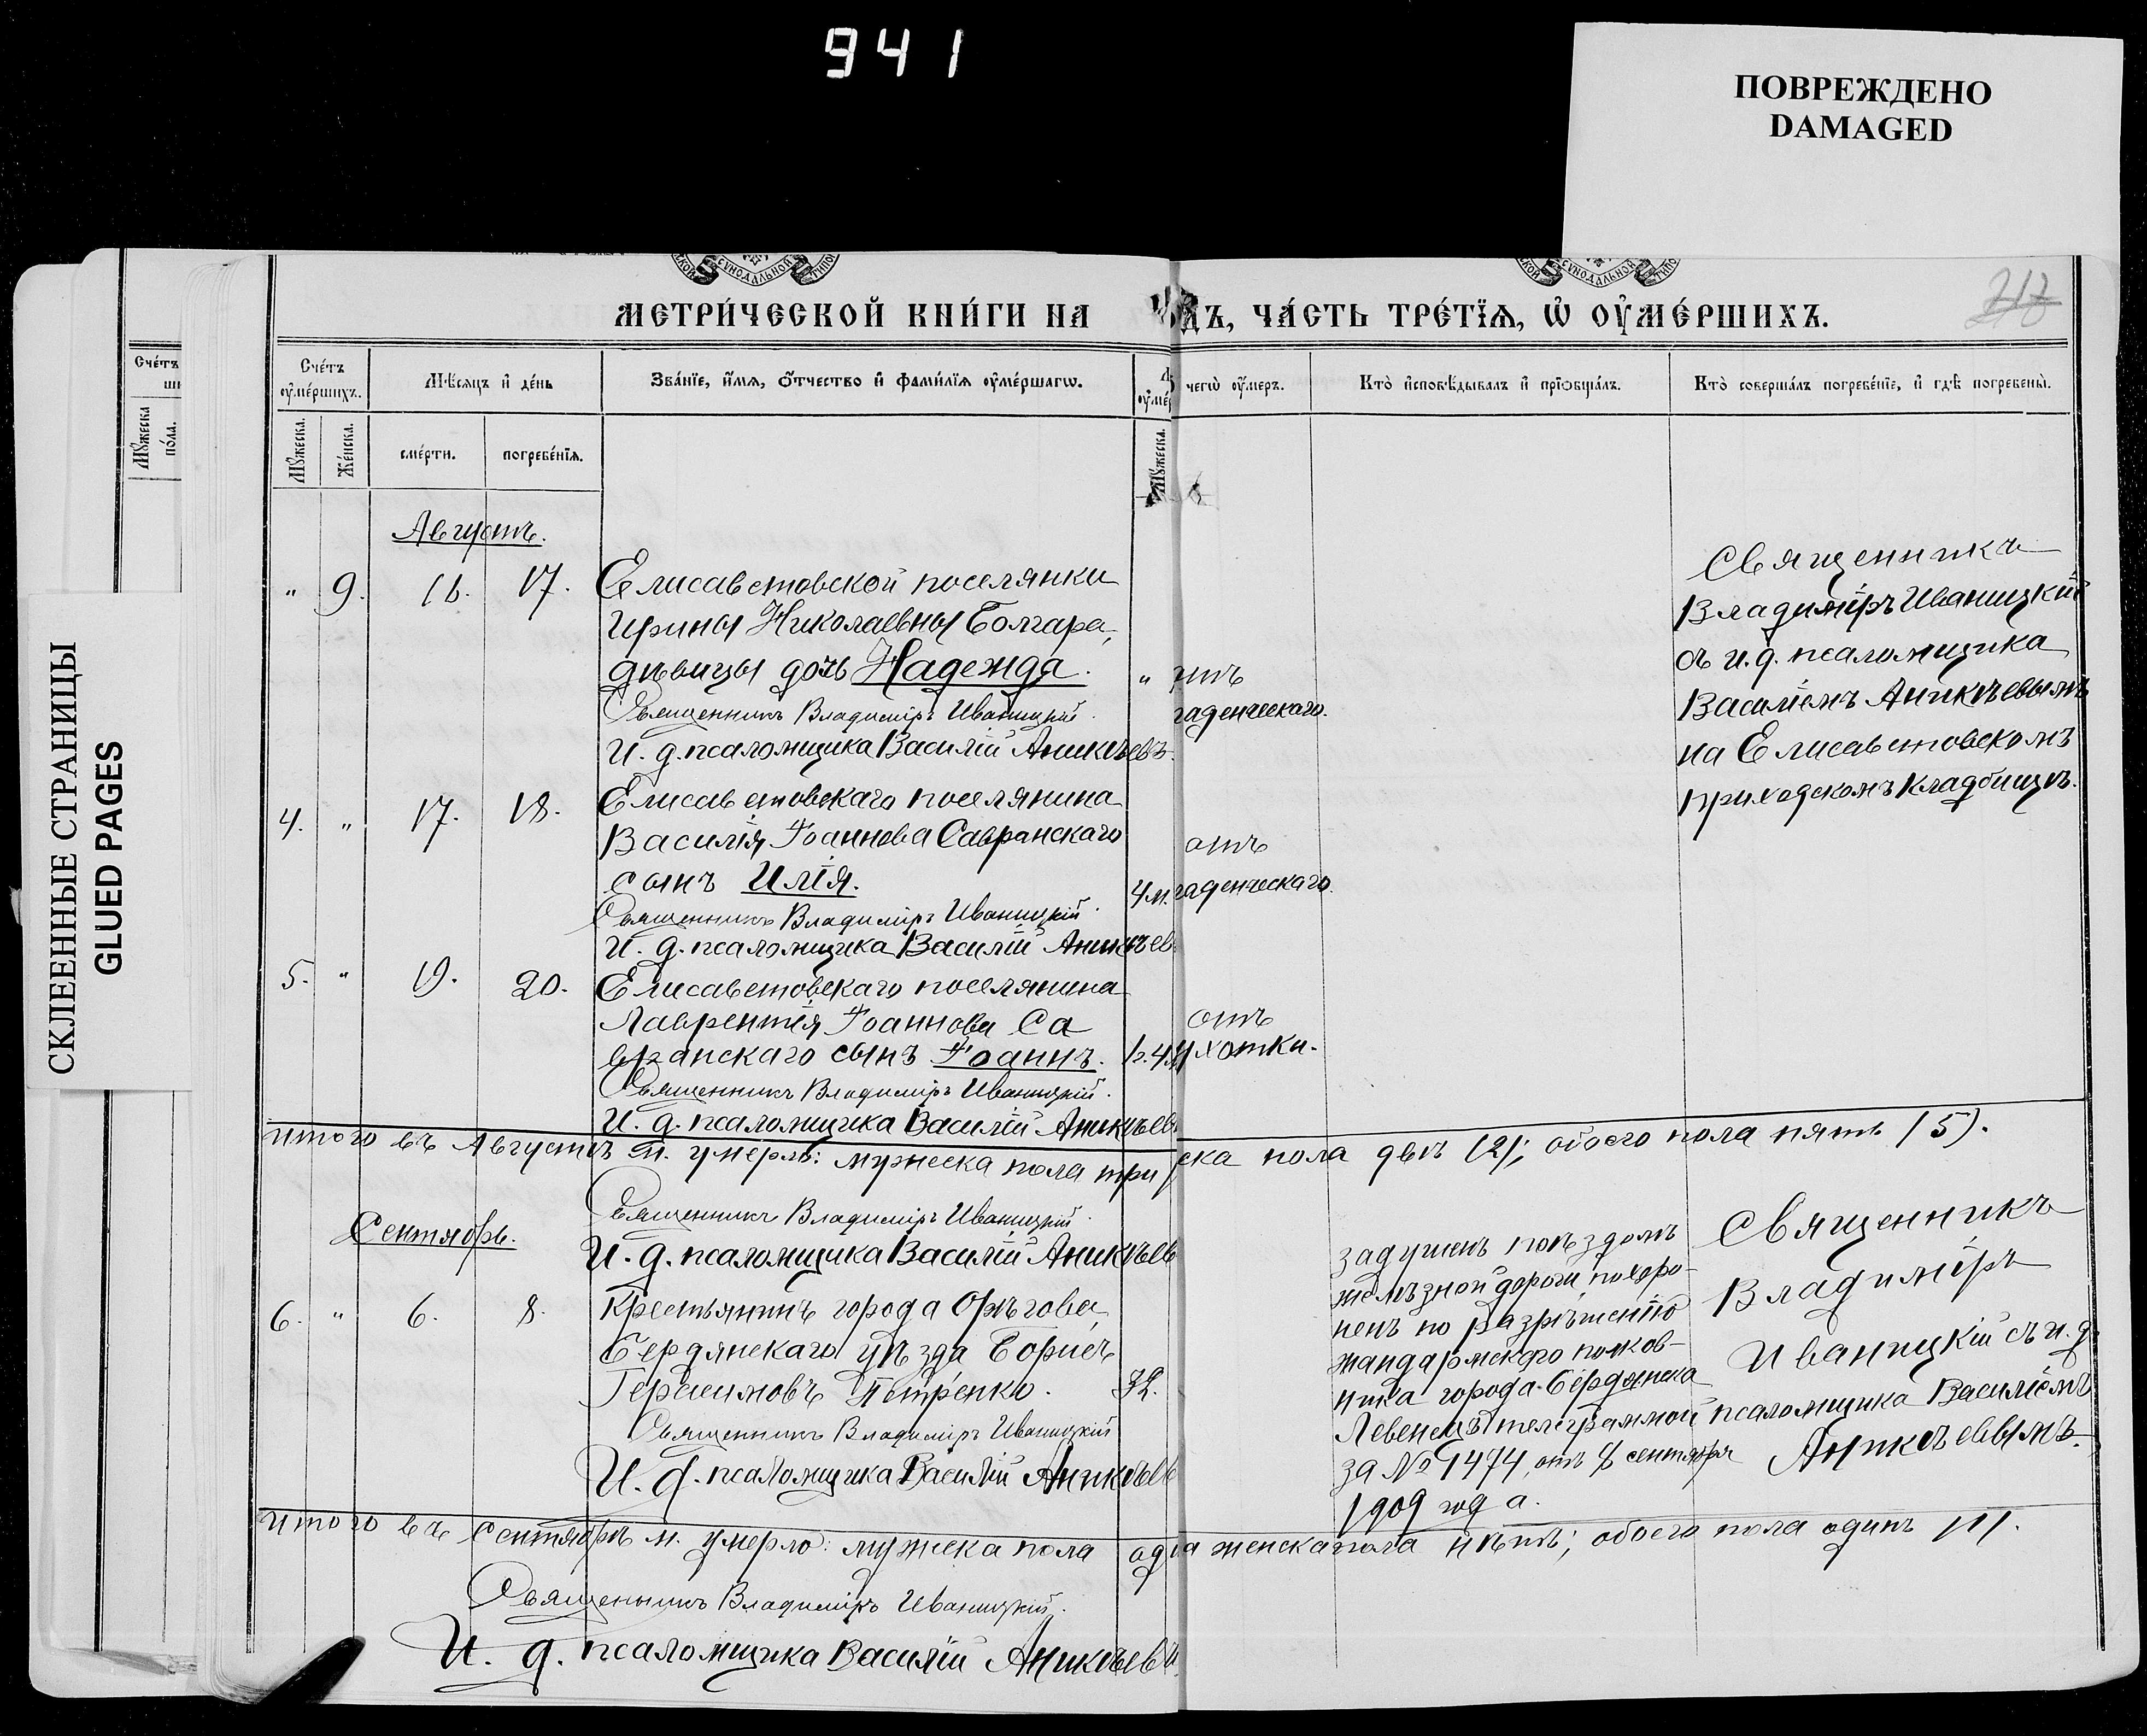 941
ПОВРЕЖДЕНО
DAMAGED
СКЛЕЕННЫЕ СТРАНИЦЫ
GLUED PAGES
МЕТРИ́ЧЕСКОЙ КНИ́ГИ НА
ДЪ, ЧА́СТЬ ТРЕ́ТЇѦ, Ѡ҆ ОУ҆МЕ́РШИХЪ.
Сче́тъ
Мꙋ́жеска
по́ла.
Сче́тъ оу҆ме́ршихъ.
Мѣ́сѧцъ и҆ де́нь
Зва́нїе, и҆́мѧ, ѻ҆́тчество и҆ фами́лїѧ оу҆ме́ршагѡ.
чегѡ̀ оу҆́меръ.
Кто̀ и҆сповѣ́дывалъ и҆ прїѡбща́лъ.
Кто̀ соверша́лъ погребе́нїе, и҆ гдѣ̀ погребены̀.
Мꙋ́жеска.
Же́нска.
сме́рти.
погребе́нїѧ.
Мꙋ́жеска.
Августъ.
" 9. 16. 17. Елисаветовской поселянки
Ирины Николаевны Болгара,
дѣвицы дочь Надежда. "
Священникъ Владиміръ Иваницкій.
И. д. псаломщика Василій Аникѣевъ.
гаденческаго.
Священникъ
Владиміръ Иваницкій
съ и. д. псаломщика
Василіемъ Аникѣевымъ
на Елисаветовскомъ
приходскомъ кладбищѣ.
4. " 17. 18. Елисаветовскаго поселянина
Василія Іоаннова Савранскаго
сынъ Илія. 4 м.
Священникъ Владиміръ Иваницкій.
И. д. псаломщика Василій Аникѣев
отъ
гаденческаго.
5. " 19. 20. Елисаветовскаго поселянина
Лаврентія Іоаннова Са
вранскаго сынъ Іоаннъ. 1 г. 4 м
Священникъ Владиміръ Иваницкій.
И. д. псаломщика Василій Аникѣев
отъ
хотки.
Итого въ Августѣ м. умерло: мужеска пола три
ска пола двѣ (2); обоего пола пять (5).
Священникъ Владиміръ Иваницкій.
И. д. псаломщика Василій Аникѣев
Сентябрь.
6. " 6. 8. Крестьянинъ города Орѣхова,
Бердянскаго уѣзда Борисъ
Герасимовъ Петренко. 32.
Священникъ Владиміръ Иваницкій
И. д. псаломщика Василій Аникѣев
задушенъ поѣздомъ
желѣзной дороги, похоро-
ненъ по разрѣшенію
жандармскаго полков-
ника города Бердянска
Левенецъ телеграммой
за № 1474, отъ 8 сентября
1909 года.
Священникъ
Владиміръ
Иваницкій съ и. д.
псаломщика Василіемъ
Аникѣевымъ.
Итого въ Сентябрѣ м. умерло: мужеска пола
женска пола нѣтъ; обоего пола одинъ (1).
Священникъ Владиміръ Иваницкій.
И. д. псаломщика Василій Аникѣев